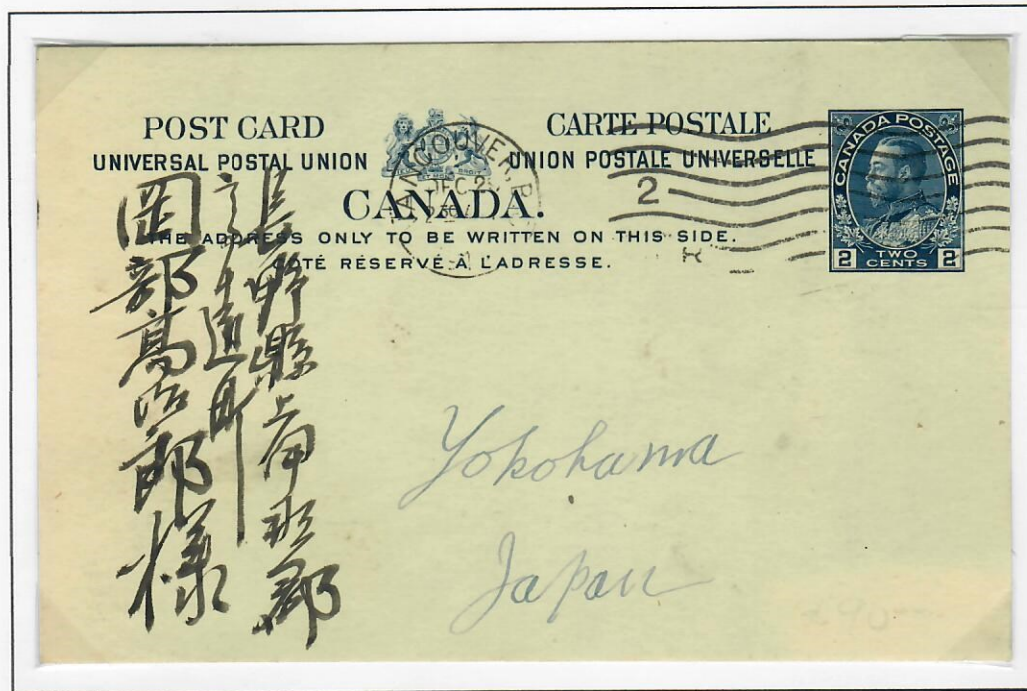 POST CARD
CARTE POSTALE
UNIVERSAL POSTAL UNION
UNION POSTALE UNIVERSELLE
CANADA.
THE ADDRESS ONLY TO BE WRITTEN ON THIS SIDE.
CÔTÉ RÉSERVÉ À L'ADRESSE.
VANCOUVER. B
DEC 2
2
CANADA POSTAGE
2 TWO CENTS 2
長野縣上伊那郡
高遠町
岡部高治郎様
Yokohama
Japan